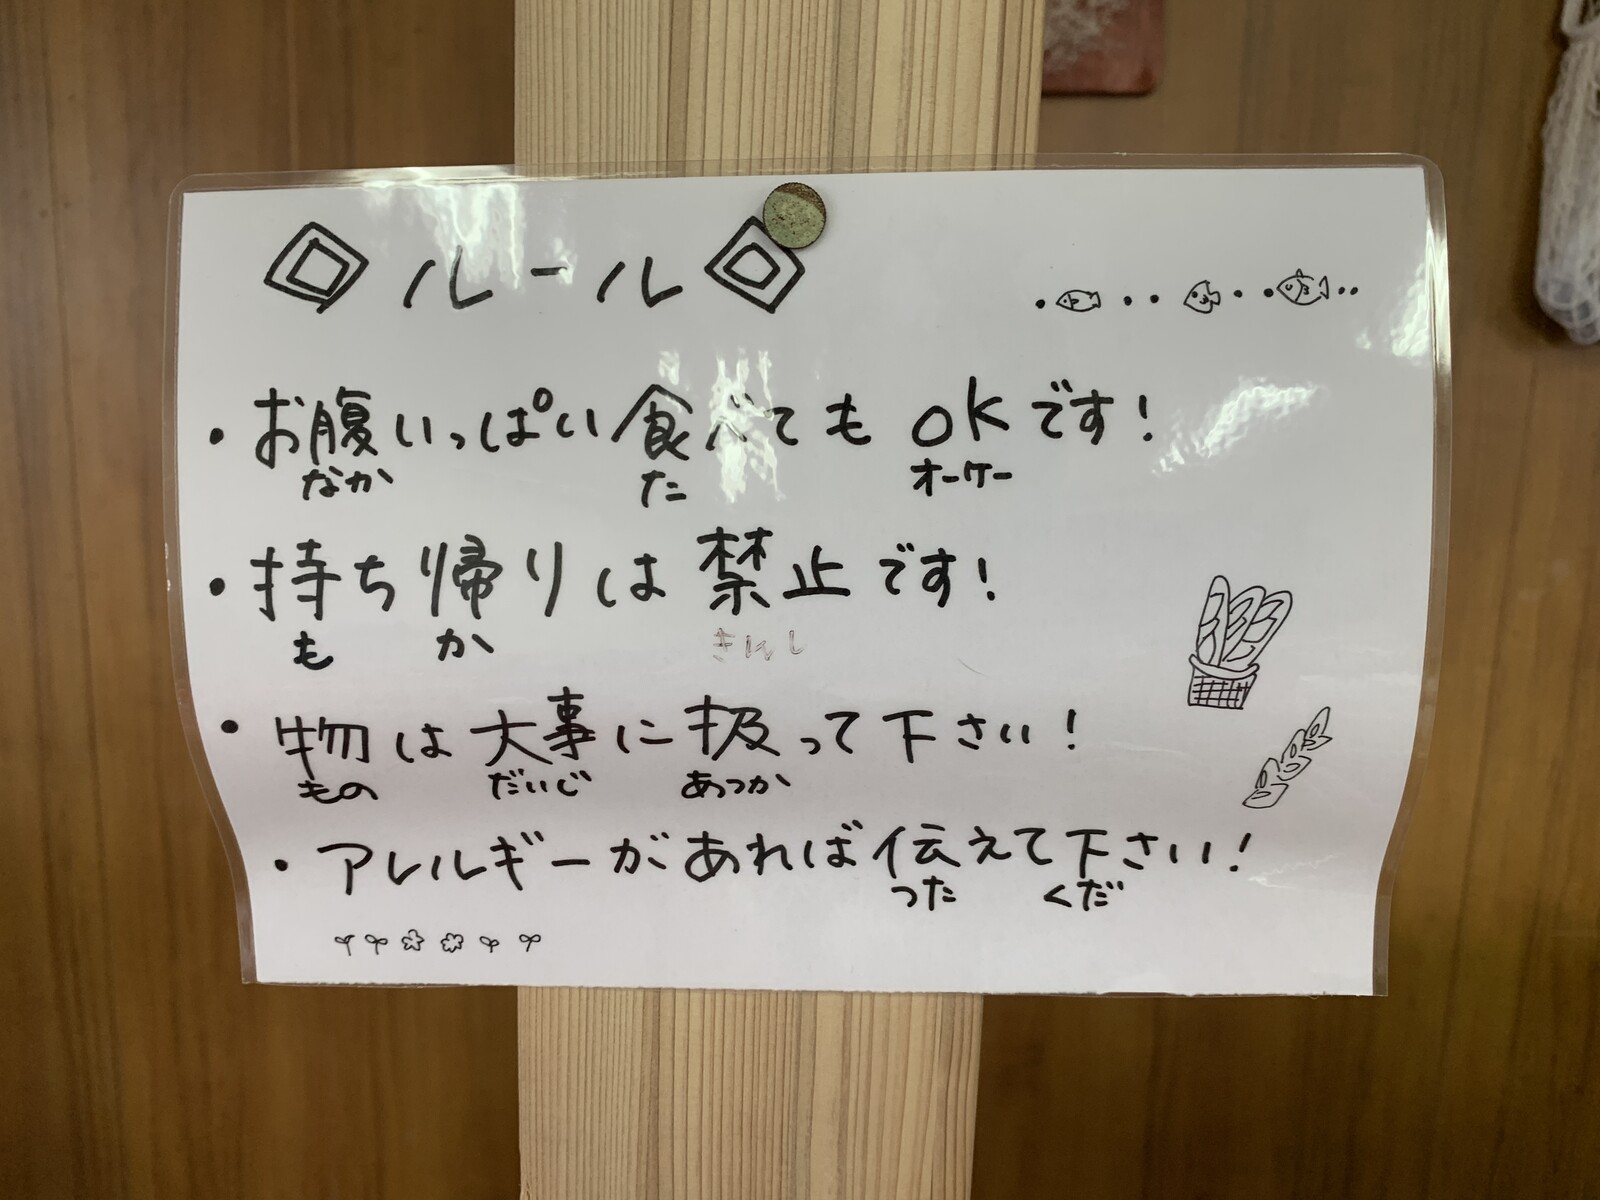 ルール
・お腹いっぱい食べてもOKです!
なか た オーケー
・持ち帰りは禁止です!
も か きんし
・物は大事に扱って下さい!
もの だいじ あつか
・アレルギーがあれば伝えて下さい!
つた くだ